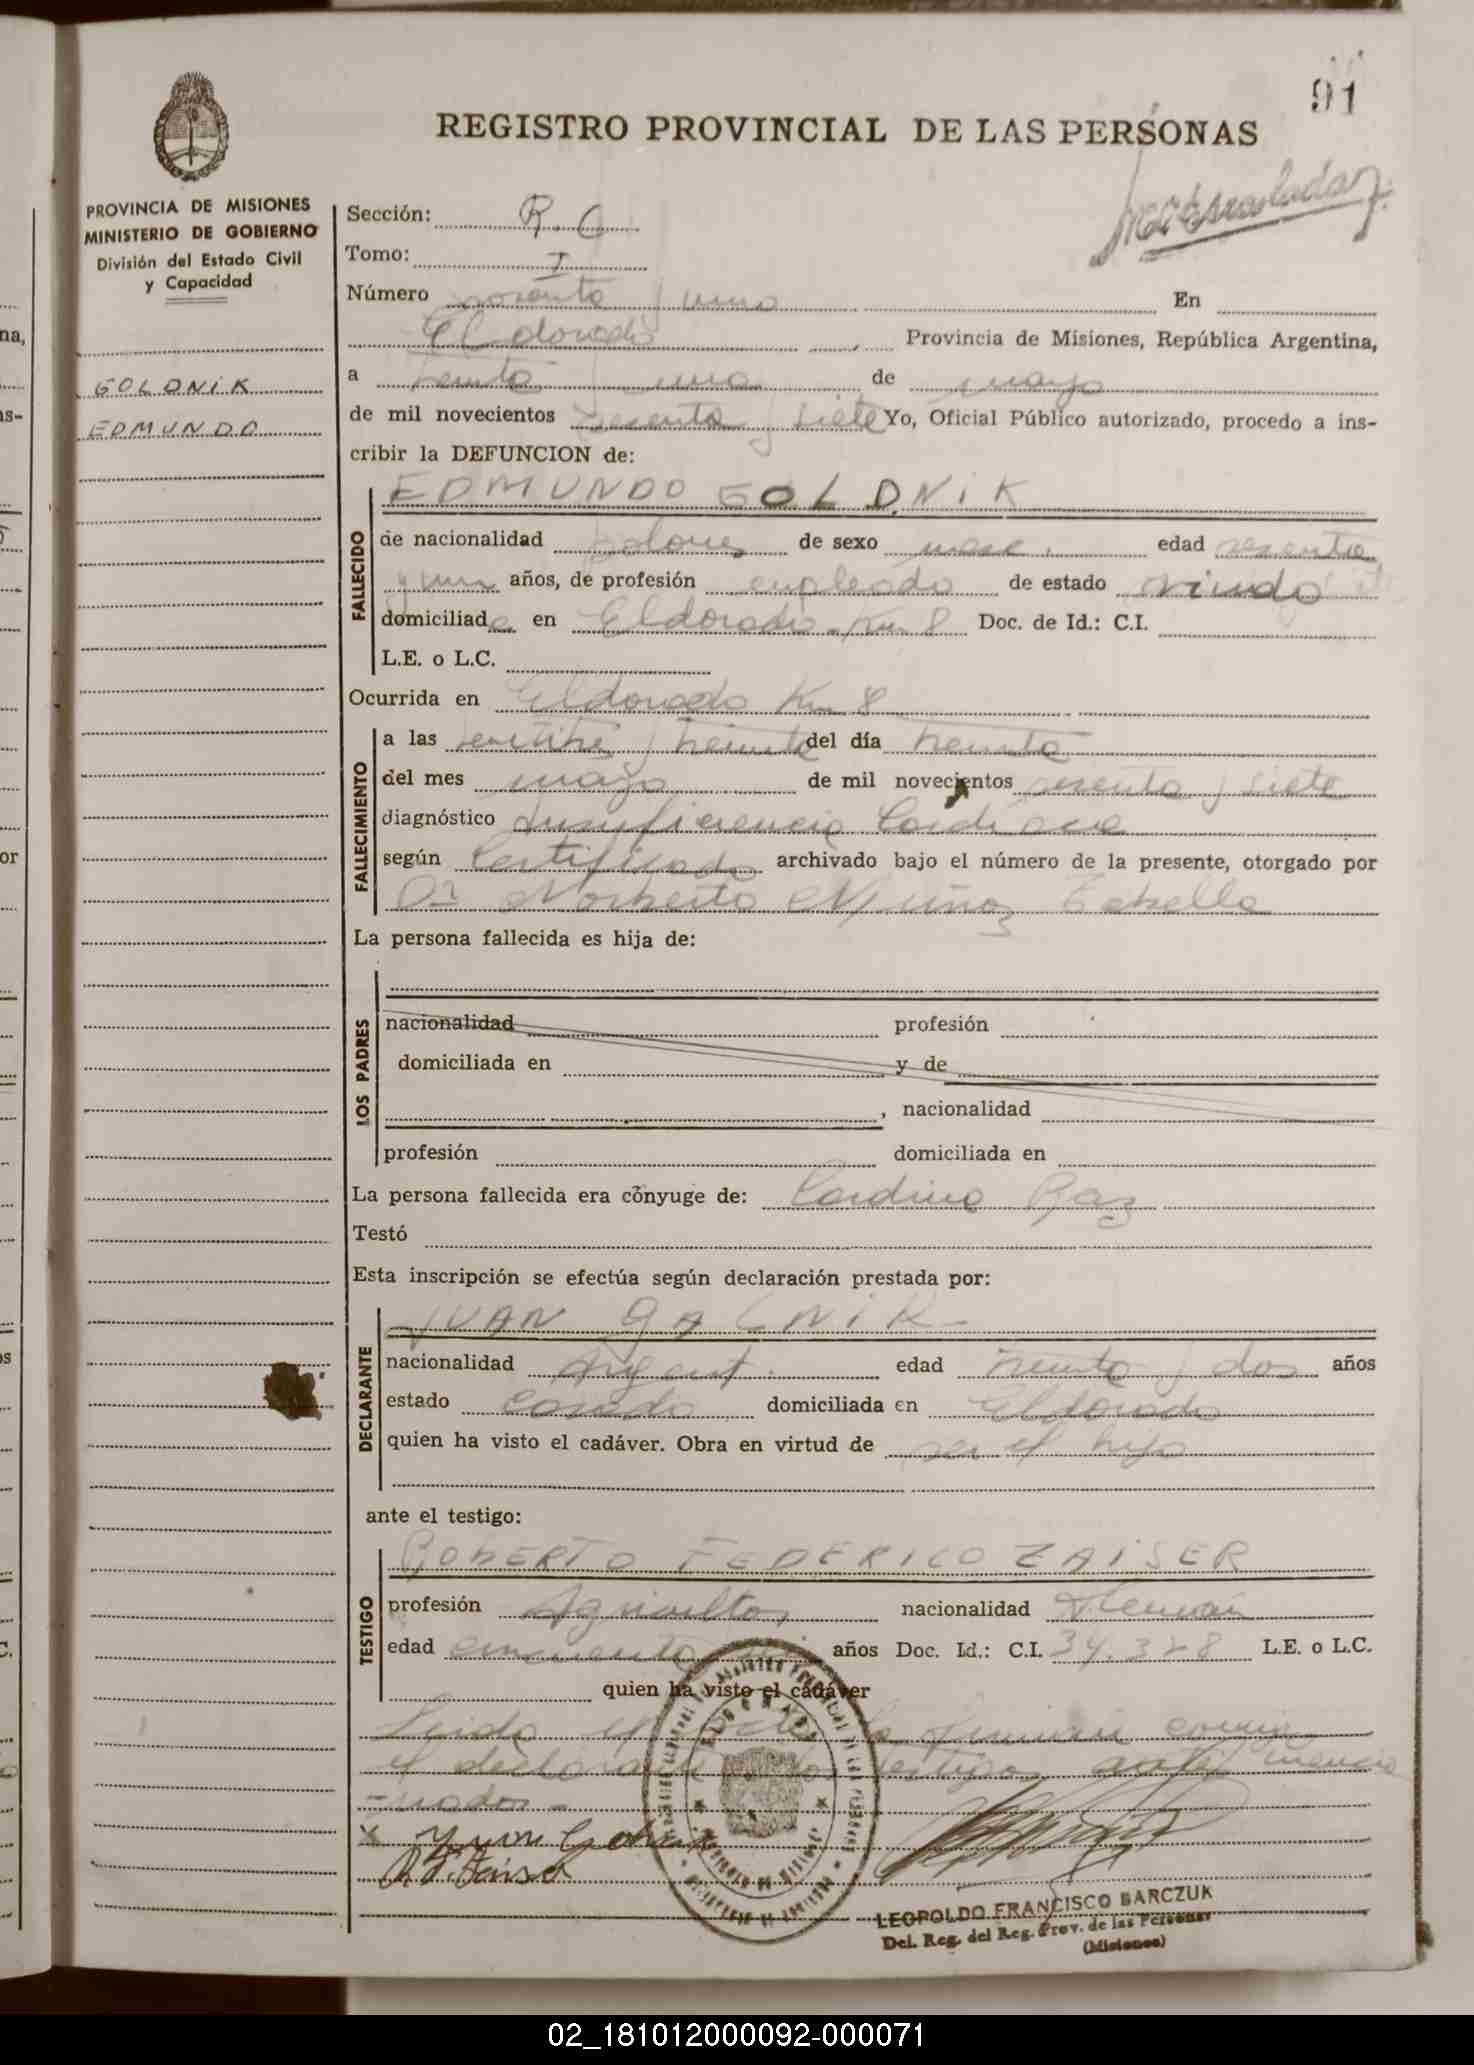 91
REGISTRO PROVINCIAL DE LAS PERSONAS
PROVINCIA DE MISIONES
MINISTERIO DE GOBIERNO
División del Estado Civil
y Capacidad
GOLDNIK
EDMUNDO
Sección: R. C
Tomo: I
Número noventa y uno En
Eldorado Provincia de Misiones, República Argentina,
a treinta y uno de mayo
de mil novecientos sesenta y siete Yo, Oficial Público autorizado, procedo a ins-
cribir la DEFUNCION de:
EDMUNDO GOLDNIK
FALLECIDO
de nacionalidad polones de sexo masc. edad sesenta
y un años, de profesión empleado de estado viudo
domiciliado en Eldorado Km 8 Doc. de Id.: C.I.
L.E. o L.C.
Ocurrida en Eldorado Km 8
FALLECIMIENTO
a las y treinta del día treinta
del mes mayo de mil novecientos sesenta y siete
diagnóstico Insuficiencia Cardiaca
según Certificado archivado bajo el número de la presente, otorgado por
Dr Norberto Muñoz
La persona fallecida es hija de:
LOS PADRES
nacionalidad profesión
domiciliada en y de
, nacionalidad
profesión domiciliada en
La persona fallecida era cónyuge de:
Testó
Esta inscripción se efectúa según declaración prestada por:
DECLARANTE
JUAN
nacionalidad Argent. edad treinta y dos años
estado casado domiciliada en Eldorado
quien ha visto el cadáver. Obra en virtud de ser el hijo
ante el testigo:
TESTIGO
ROBERTO FEDERICO ZAISER
profesión Agricultor nacionalidad Alemán
edad cincuenta años Doc. Id.: C.I. 34.328 L.E. o L.C.
quien ha visto el cadáver
Leida el acta la firman conmigo
el declarante y los testigos
LEOPOLDO FRANCISCO BARCZUK
Del. Reg. del Reg. Prov. de las Personas
(Misiones)
02_181012000092-000071